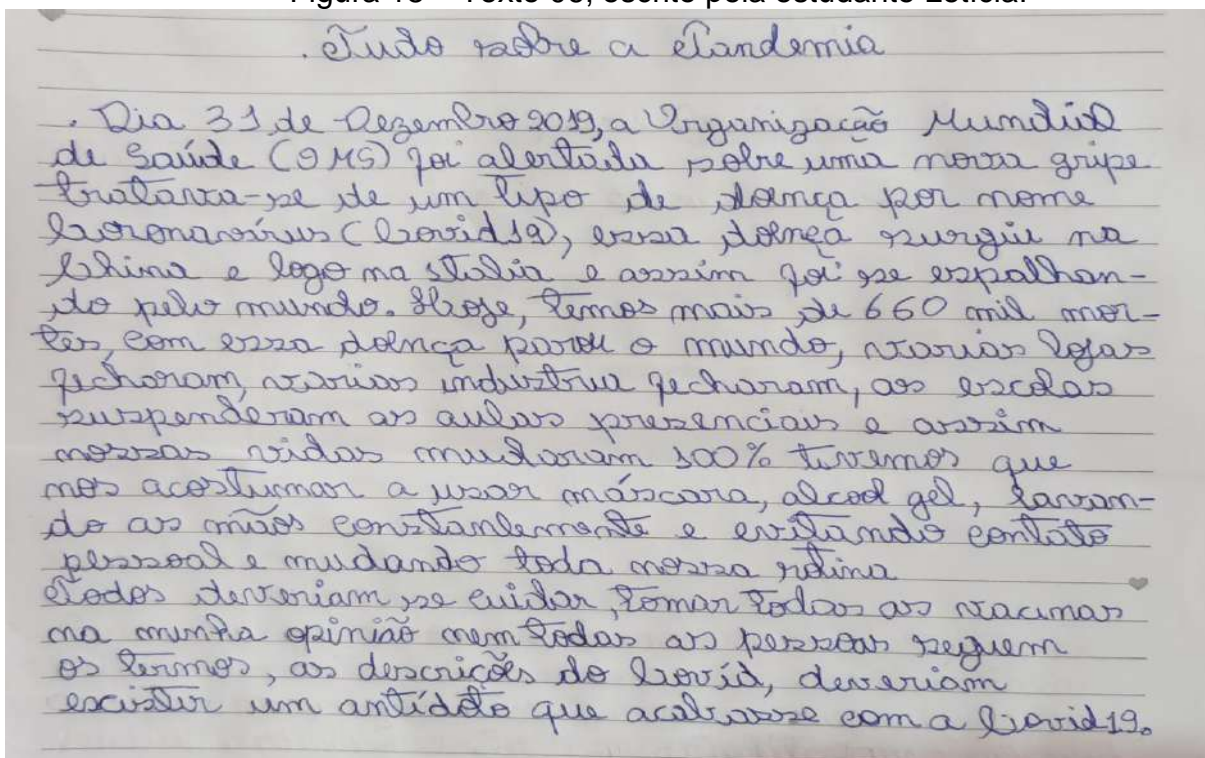 Figura 18 – Texto 03, escrito pela estudante Letícia.
. Tudo sobre a Pandemia
. Dia 31 de Dezembro 2019, a Organização Mundial
de Saúde (OMS) foi alertada sobre uma nova gripe
tratava-se de um tipo de doença por nome
Coronavírus (Covid19), essa doença surgiu na
China e logo na Itália e assim foi se espalhan-
do pelo mundo. Hoje, temos mais de 660 mil mor-
tes, com essa doença parou o mundo, varias lojas
fecharam, varias industria fecharam, as escolas
suspenderam as aulas presenciais e assim
nossas vidas mudaram 100% tivemos que
nos acostumar a usar máscara, alcool gel, lavan-
do as mãos constantemente e evitando contato
pessoal e mudando toda nossa rotina
Todos deveriam se cuidar, tomar todas as vacinas
na minha opinião nem todas as pessoas seguem
os termos, as descrições do Covid, deveriam
escistir um antídoto que acabasse com a Covid19.